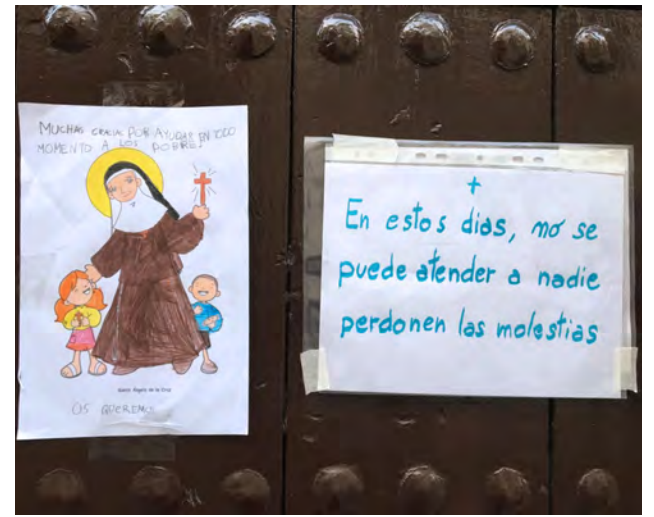 MUCHAS GRACIAS POR AYUDAR EN TODO
MOMENTO A LOS POBRES
Santa Ángela de la Cruz
OS QUEREMOS
+
En estos dias, no se
puede atender a nadie
perdonen las molestias